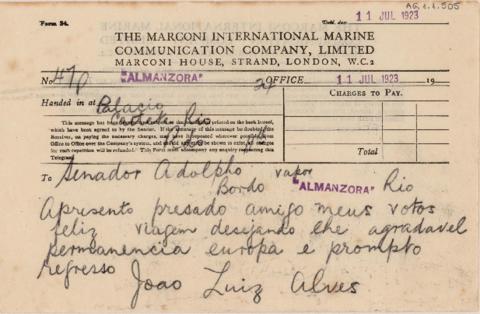 AG.1.1.505
Form 34.
11 JUL 1923
THE MARCONI INTERNATIONAL MARINE
COMMUNICATION COMPANY, LIMITED
MARCONI HOUSE, STRAND, LONDON, W.C.2
No. 47p "ALMANZORA" OFFICE 11 JUL 1923 19
Handed in at Palacio
Rio
CHARGES TO PAY.
This message has been
which have been agreed to by the Sender. If the message of this message be doubtful, the
Receiver, on paying the necessary charges, may have it repeated wherever possible, from
Office to Office over the Company's system, and
for each repetition will be refunded. This Form must accompany any enquiry respecting this
Telegram.
Total
To Senador Adolpho vapor
Bordo "ALMANZORA" Rio
Apresento presado amigo meus votos
feliz viagem desejando lhe agradavel
permanencia europa e prompto
regresso
Joao Luiz Alves